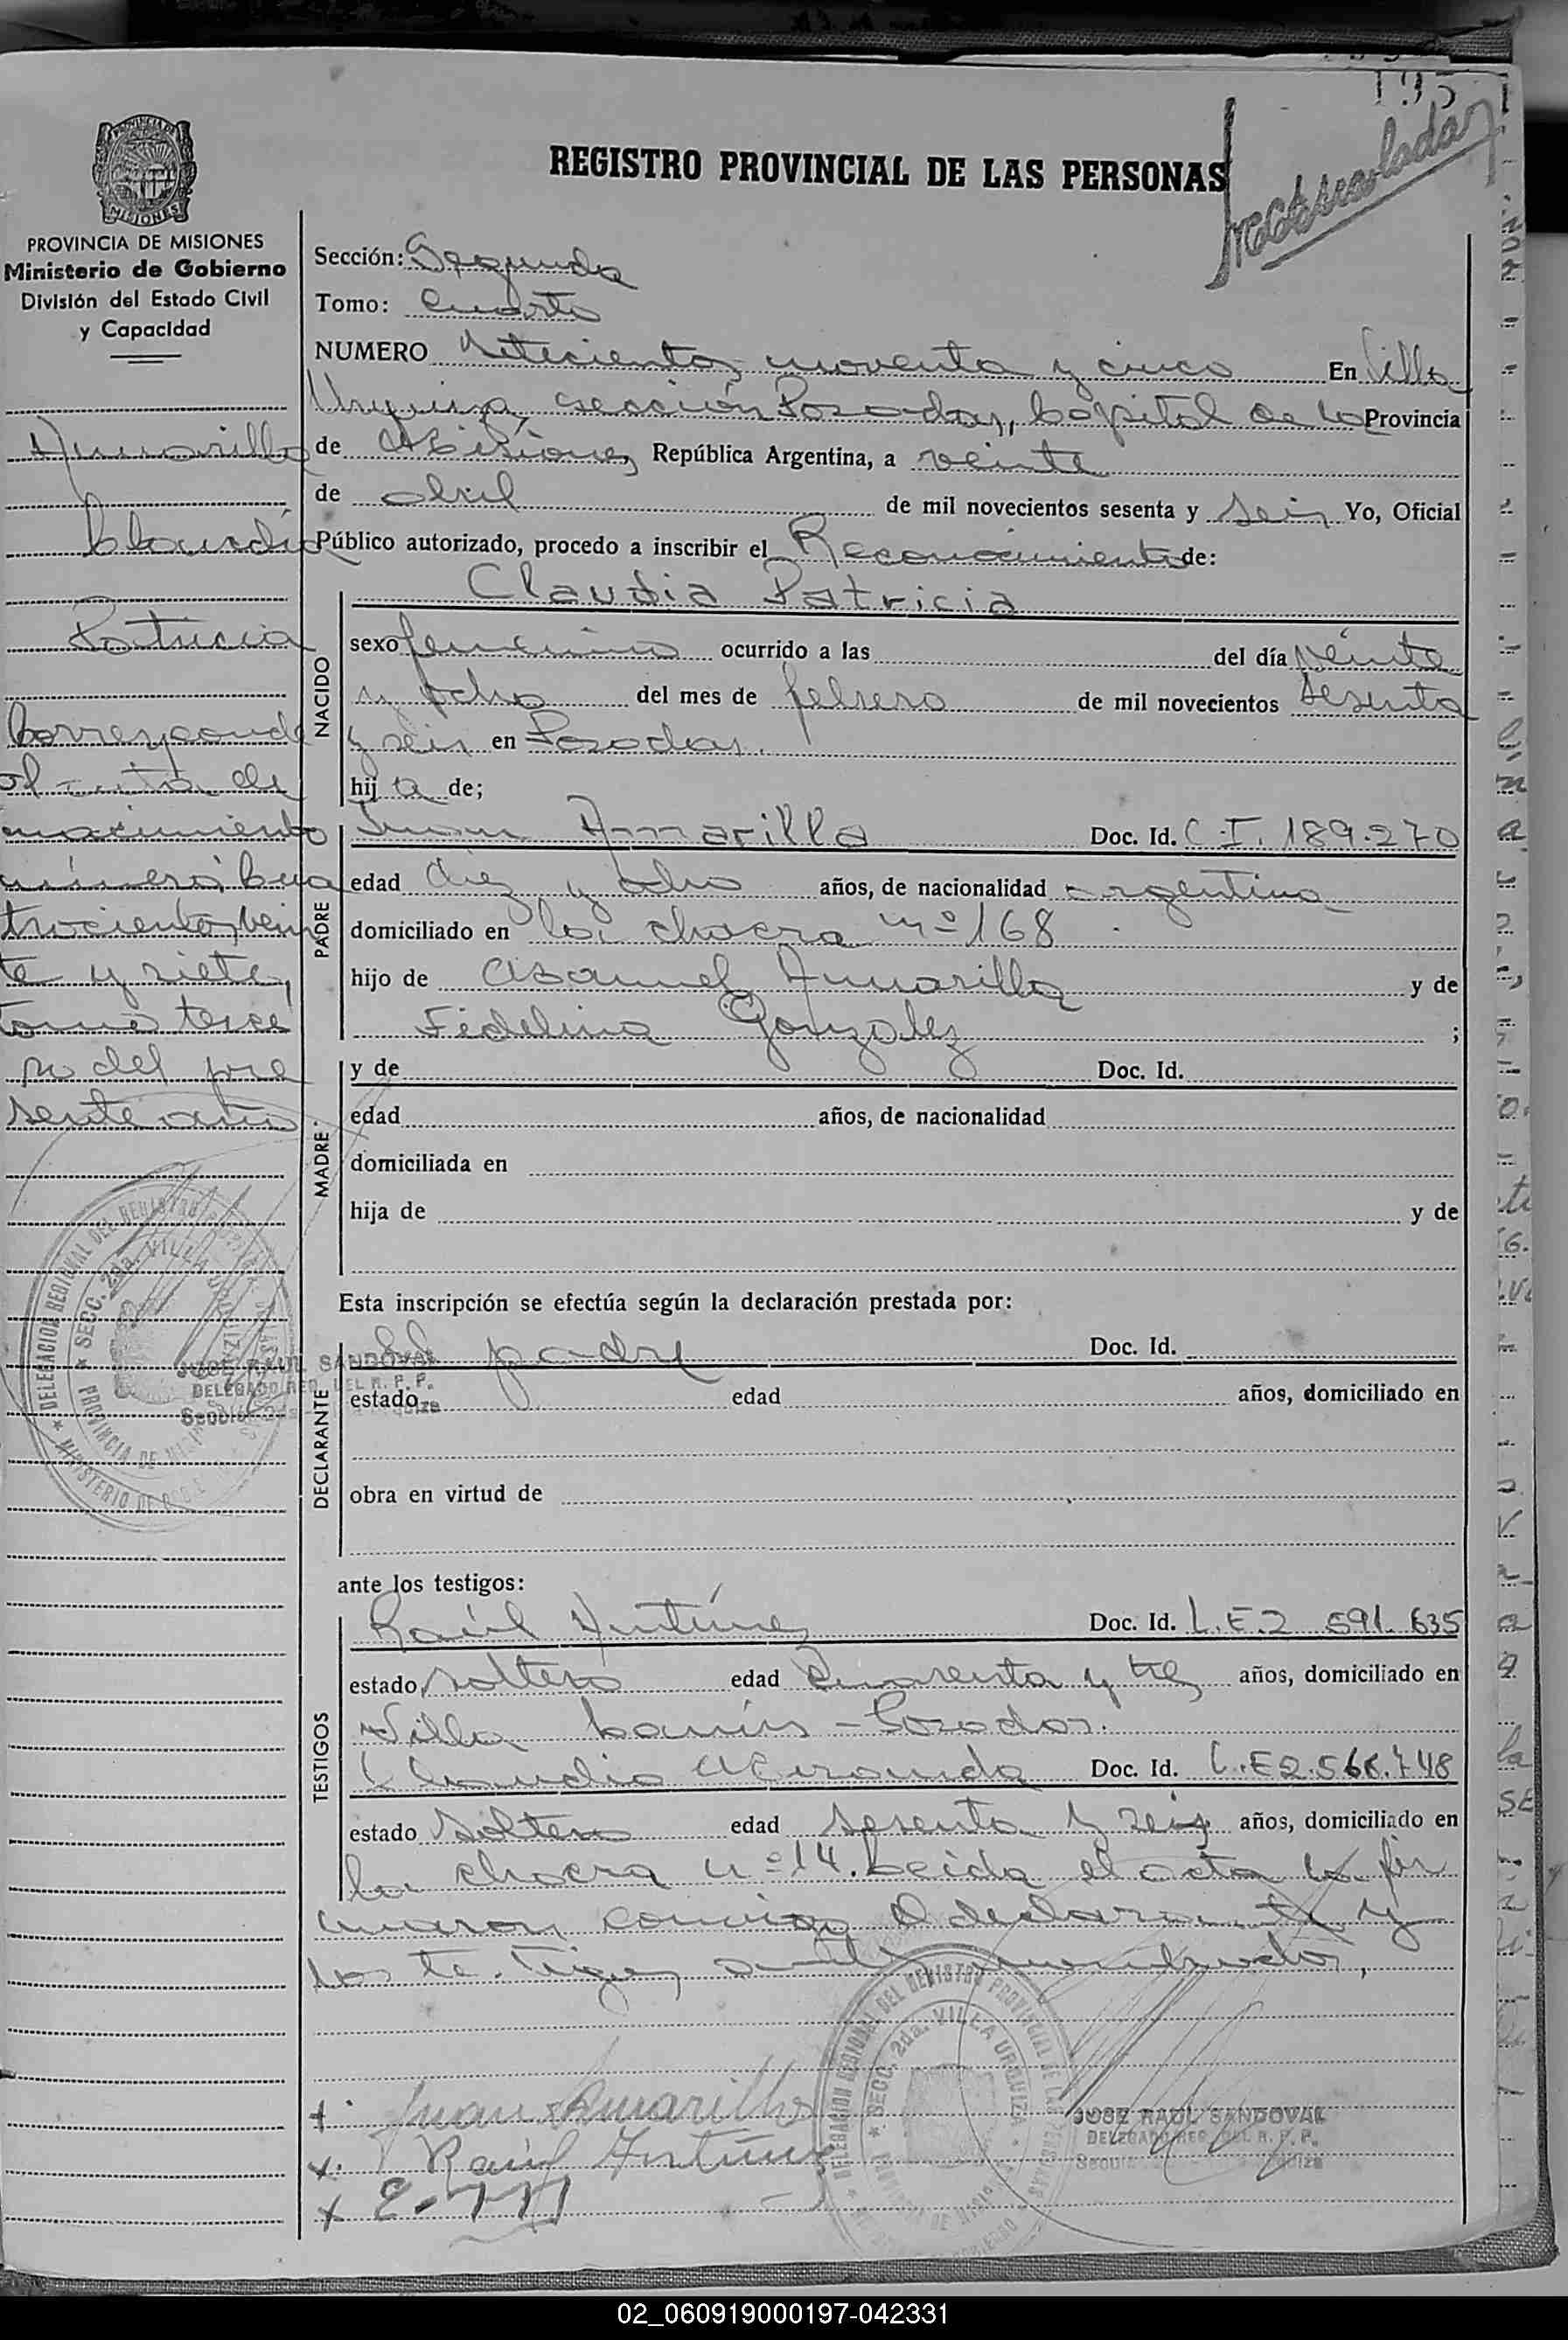 195
REGISTRO PROVINCIAL DE LAS PERSONAS
PROVINCIA DE MISIONES
Ministerio de Gobierno
División del Estado Civil
y Capacidad
Amarilla
Claudia
Patricia
Corresponde
al acta de
nacimiento
número cua
trocientos vein
te y siete,
tomo terce
ro del pre
sente año
Sección: Segunda
Tomo: Cuarto
NUMERO setecientos noventa y cinco En Villa
Urquiza, sección Posadas, Capital de la Provincia
de Misiones, República Argentina, a veinte
de abril de mil novecientos sesenta y seis Yo, Oficial
Público autorizado, procedo a inscribir el Reconocimiento de:
NACIDO
Claudia Patricia
sexo femenino ocurrido a las del día veinte
y ocho del mes de febrero de mil novecientos sesenta
y seis en Posadas.
hija de;
PADRE
Juan Amarilla Doc. Id. C.I. 189.270
edad diez y ocho años, de nacionalidad argentina
domiciliado en la chacra nº 168
hijo de Manuel Amarilla y de
Fidelina Gonzalez ;
MADRE
y de Doc. Id.
edad años, de nacionalidad
domiciliada en
hija de y de
Esta inscripción se efectúa según la declaración prestada por:
DECLARANTE
El padre Doc. Id.
estado edad años, domiciliado en
obra en virtud de
ante los testigos:
TESTIGOS
Raúl Antúnez Doc. Id. L.E.2 591.635
estado soltero edad cuarenta y tres años, domiciliado en
Villa Posadas.
Claudio Miranda Doc. Id. L.E2.568.748
estado soltero edad sesenta y seis años, domiciliado en
la chacra nº 14. Leida el acta la fir
maron conmigo el declarante y
los testigos mencionados,
+ Juan Amarilla
x. Raúl Antúnez
x
DELEGACION REGIONAL DEL REGISTRO PROVINCIAL DE LAS PERSONAS
SECC. 2da. VILLA URQUIZA
PROVINCIA DE MISIONES
MINISTERIO DE GOBIERNO
JOSE RAUL SANDOVAL
DELEGADO REG. DEL R. P. P.
JOSE RAUL SANDOVAL
DELEGADO REG. DEL R. P. P.
02_060919000197-042331